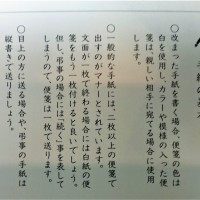 〇改まった手紙を書く場合、便箋の色は
白を使用し、カラーや模様の入った便
箋は、親しい相手に宛てる場合に使用
します。
〇一般的な手紙には、二枚以上の便箋で
出すのがマナーとされています。
文面が一枚で終わる場合には白紙の便
箋をもう一枚付けると良いでしょう。
但し、弔事の場合には「続く」事を表して
しまうので、便箋は一枚で送ります。
〇目上の方に送る場合や、弔事の手紙は
縦書きで送りましょう。